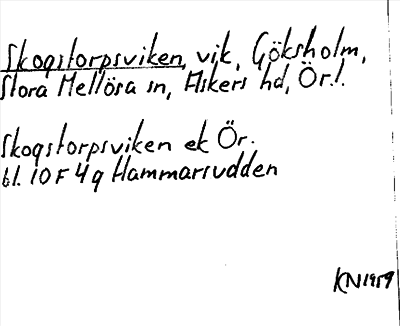 Skogstorpsviken, vik, Göksholm,
Stora Mellösa sn, Askers hd, Ör.l.
Skogstorpsviken ek Ör.
bl. 10 F 4 g Hammarsudden
KN 1959